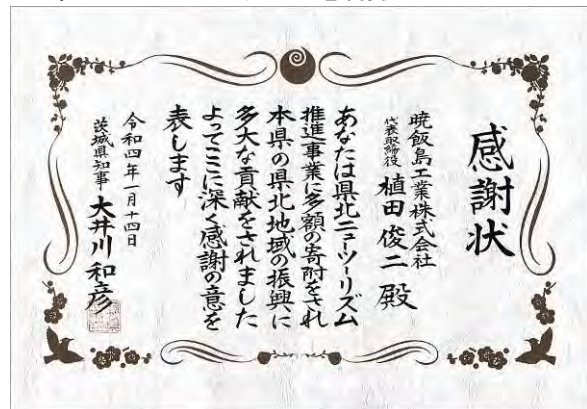 感謝状
暁飯島工業株式会社
代表取締役 植田俊二 殿
あなたは県北ニューツーリズム
推進事業に多額の寄附をされ
本県の県北地域の振興に
多大な貢献をされました
よってここに深く感謝の意を
表します
令和四年一月十四日
茨城県知事 大井川和彦